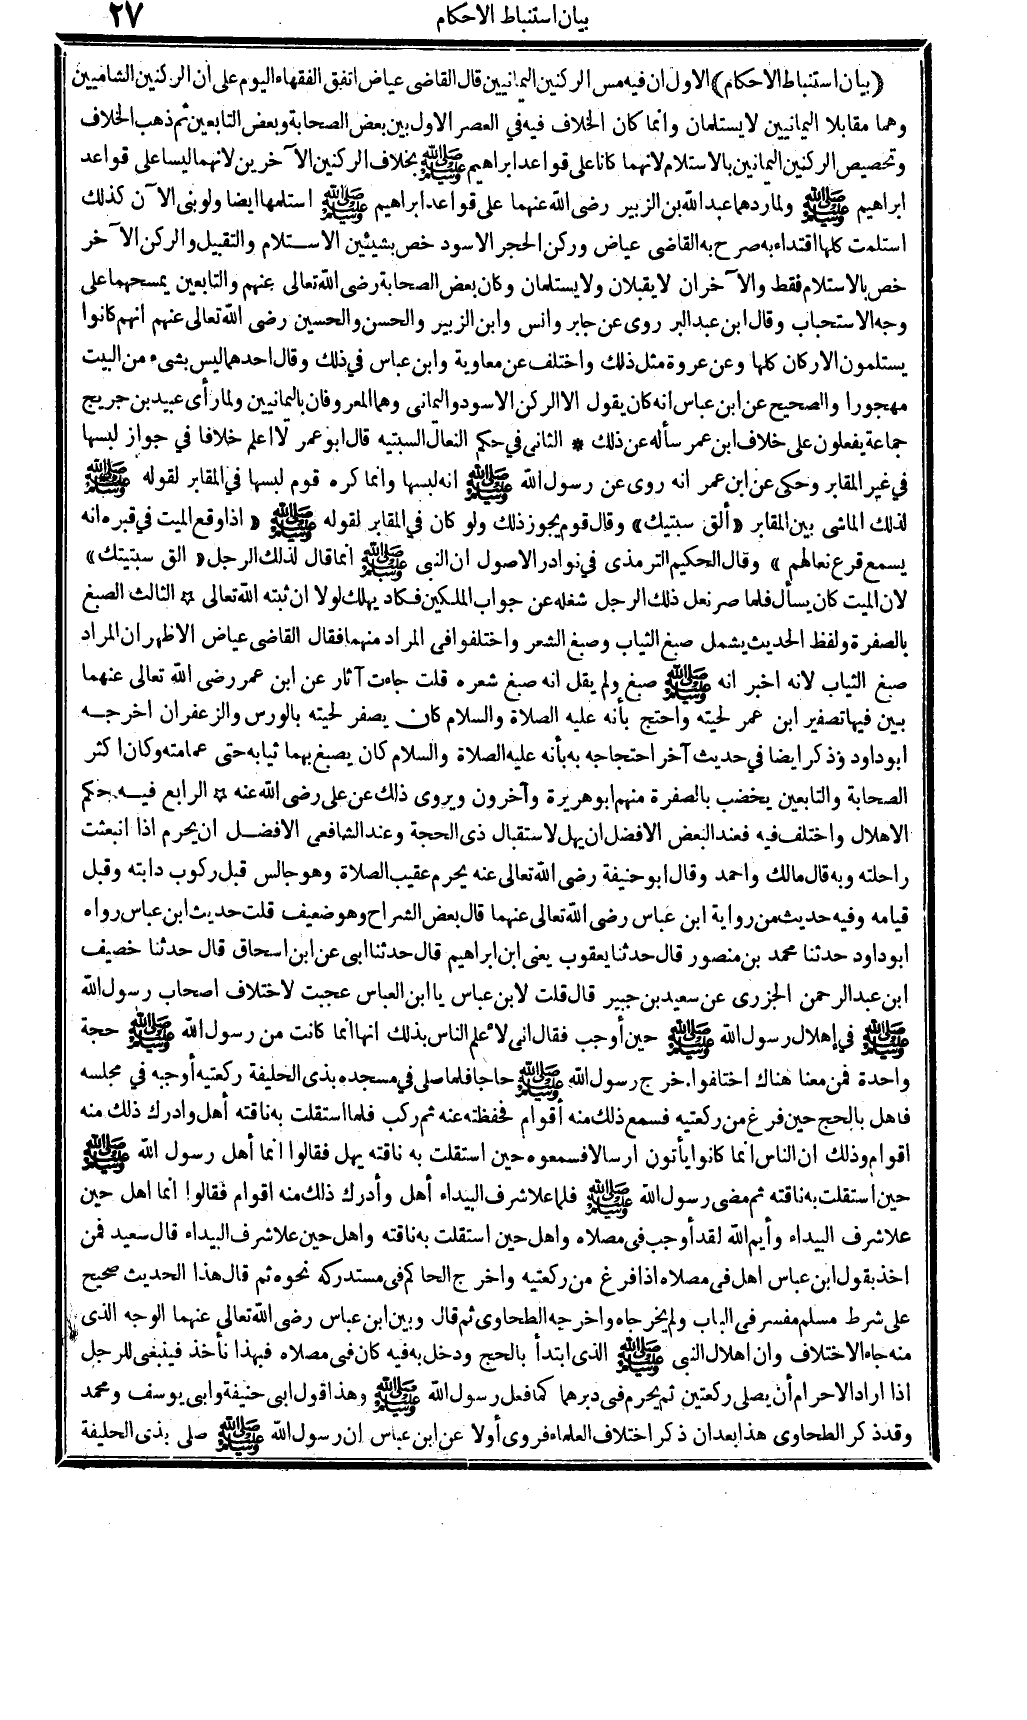 بيان استنباط الاحكام ٢٧
(بيان استنباط الاحكام) الاول ان فيه مس الركنين اليمانيين قال القاضى عياض اتفق الفقهاء اليوم على ان الركنين الشاميين
وهما مقابلا اليمانيين لا يستلمان وانما كان الخلاف فيه في العصر الاول بين بعض الصحابة وبعض التابعين ثم ذهب الخلاف
وتخصيص الركنين اليمانيين بالاستلام لانهما كانا على قواعد ابراهيم ﷺ بخلاف الركنين الآخرين لانهما ليسا على قواعد
ابراهيم ﷺ ولما ردهما عبد الله بن الزبير رضى الله عنهما على قواعد ابراهيم ﷺ استلمها ايضا ولو بنى الآن كذلك
استلمت كلها اقتداء به صرح به القاضى عياض وركن الحجر الاسود خص بشيئين الاستلام والتقبيل والركن الآخر
خص بالاستلام فقط والآخران لا يقبلان ولا يستلمان وكان بعض الصحابة رضى الله تعالى عنهم والتابعين يمسحهما على
وجه الاستحباب وقال ابن عبد البر روى عن جابر وانس وابن الزبير والحسن والحسين رضى الله تعالى عنهم انهم كانوا
يستلمون الاركان كلها وعن عروة مثل ذلك واختلف عن معاوية وابن عباس في ذلك وقال احدهما ليس بشىء من البيت
مهجورا والصحيح عن ابن عباس انه كان يقول الا الركن الاسود واليمانى وهما المعروفان باليمانيين ولما رأى عبيد بن جريج
جماعة يفعلون على خلاف ابن عمر سأله عن ذلك * الثانى في حكم النعال السبتيه قال ابو عمر لا اعلم خلافا في جواز لبسها
في غير المقابر وحكى عن ابن عمر انه روى عن رسول الله ﷺ انه لبسها وانما كره قوم لبسها في المقابر لقوله ﷺ
لذلك الماشى بين المقابر «ألق سبتيك» وقال قوم يجوز ذلك ولو كان في المقابر لقوله ﷺ «اذا وقع الميت في قبره انه
يسمع قرع نعالهم» وقال الحكيم الترمذى في نوادر الاصول ان النبى ﷺ انما قال لذلك الرجل «الق سبتيتك»
لان الميت كان يسأل فلما صر نعل ذلك الرجل شغله عن جواب الملكين فكاد يهلك لولا ان ثبته الله تعالى * الثالث الصبغ
بالصفرة ولفظ الحديث يشمل صبغ الثياب وصبغ الشعر واختلفوا فى المراد منهما فقال القاضى عياض الاظهر ان المراد
صبغ الثياب لانه اخبر انه ﷺ صبغ ولم يقل انه صبغ شعره قلت جاءت آثار عن ابن عمر رضى الله تعالى عنهما
بين فيها تصفير ابن عمر لحيته واحتج بأنه عليه الصلاة والسلام كان يصفر لحيته بالورس والزعفران اخرجه
ابو داود وذكر ايضا في حديث آخر احتجاجه به بأنه عليه الصلاة والسلام كان يصبغ بهما ثيابه حتى عمامته وكان اكثر
الصحابة والتابعين يخضب بالصفرة منهم ابو هريرة وآخرون ويروى ذلك عن على رضى الله عنه * الرابع فيه حكم
الاهلال واختلف فيه فعند البعض الافضل ان يهل لاستقبال ذى الحجة وعند الشافعى الافضل ان يحرم اذا انبعثت
راحلته وبه قال مالك واحمد وقال ابو حنيفة رضى الله تعالى عنه يحرم عقيب الصلاة وهو جالس قبل ركوب دابته وقبل
قيامه وفيه حديث من رواية ابن عباس رضى الله تعالى عنهما قال بعض الشراح وهو ضعيف قلت حديث ابن عباس رواه
ابو داود حدثنا محمد بن منصور قال حدثنا يعقوب يعنى ابن ابراهيم قال حدثنا ابى عن ابن اسحاق قال حدثنا خصيف
ابن عبد الرحمن الجزرى عن سعيد بن جبير قال قلت لابن عباس يا ابن العباس عجبت لاختلاف اصحاب رسول الله
ﷺ في إهلال رسول الله ﷺ حين أوجب فقال انى لأعلم الناس بذلك انها انما كانت من رسول الله ﷺ حجة
واحدة فمن معنا هناك اختلفوا. خرج رسول الله ﷺ حاجا فلما صلى في مسجده بذى الحليفة ركعتيه أوجبه في مجلسه
فاهل بالحج حين فرغ من ركعتيه فسمع ذلك منه أقوام فحفظته عنه ثم ركب فلما استقلت به ناقته أهل وادرك ذلك منه
اقوام وذلك ان الناس انما كانوا يأتون ارسالا فسمعوه حين استقلت به ناقته يهل فقالوا انما أهل رسول الله ﷺ
حين استقلت به ناقته ثم مضى رسول الله ﷺ فلما علا شرف البيداء أهل وأدرك ذلك منه اقوام فقالوا انما اهل حين
علا شرف البيداء وأيم الله لقد أوجب فى مصلاه واهل حين استقلت به ناقته واهل حين علا شرف البيداء قال سعيد فمن
اخذ بقول ابن عباس اهل فى مصلاه اذا فرغ من ركعتيه واخرج الحاكم فى مستدركه نحوه ثم قال هذا الحديث صحيح
على شرط مسلم مفسر فى الباب ولم يخرجاه واخرجه الطحاوى ثم قال وبين ابن عباس رضى الله تعالى عنهما الوجه الذى
منه جاء الاختلاف وان اهلال النبى ﷺ الذى ابتدأ بالحج ودخل به فيه كان فى مصلاه فبهذا نأخذ فينبغى للرجل
اذا اراد الاحرام أن يصلى ركعتين ثم يحرم فى دبرهما كما فعل رسول الله ﷺ وهذا قول ابى حنيفة وابى يوسف ومحمد
وقد ذكر الطحاوى هذا بعد ان ذكر اختلاف العلماء فروى أولا عن ابن عباس ان رسول الله ﷺ صلى بذى الحليفة